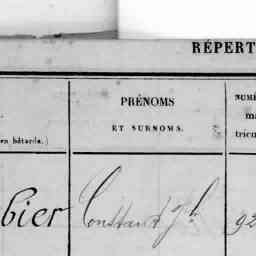 RÉPERT
PRÉNOMS
ET SURNOMS.
NUMÉ
ma
tricu
en bâtarde.)
bier Constant Jh 92